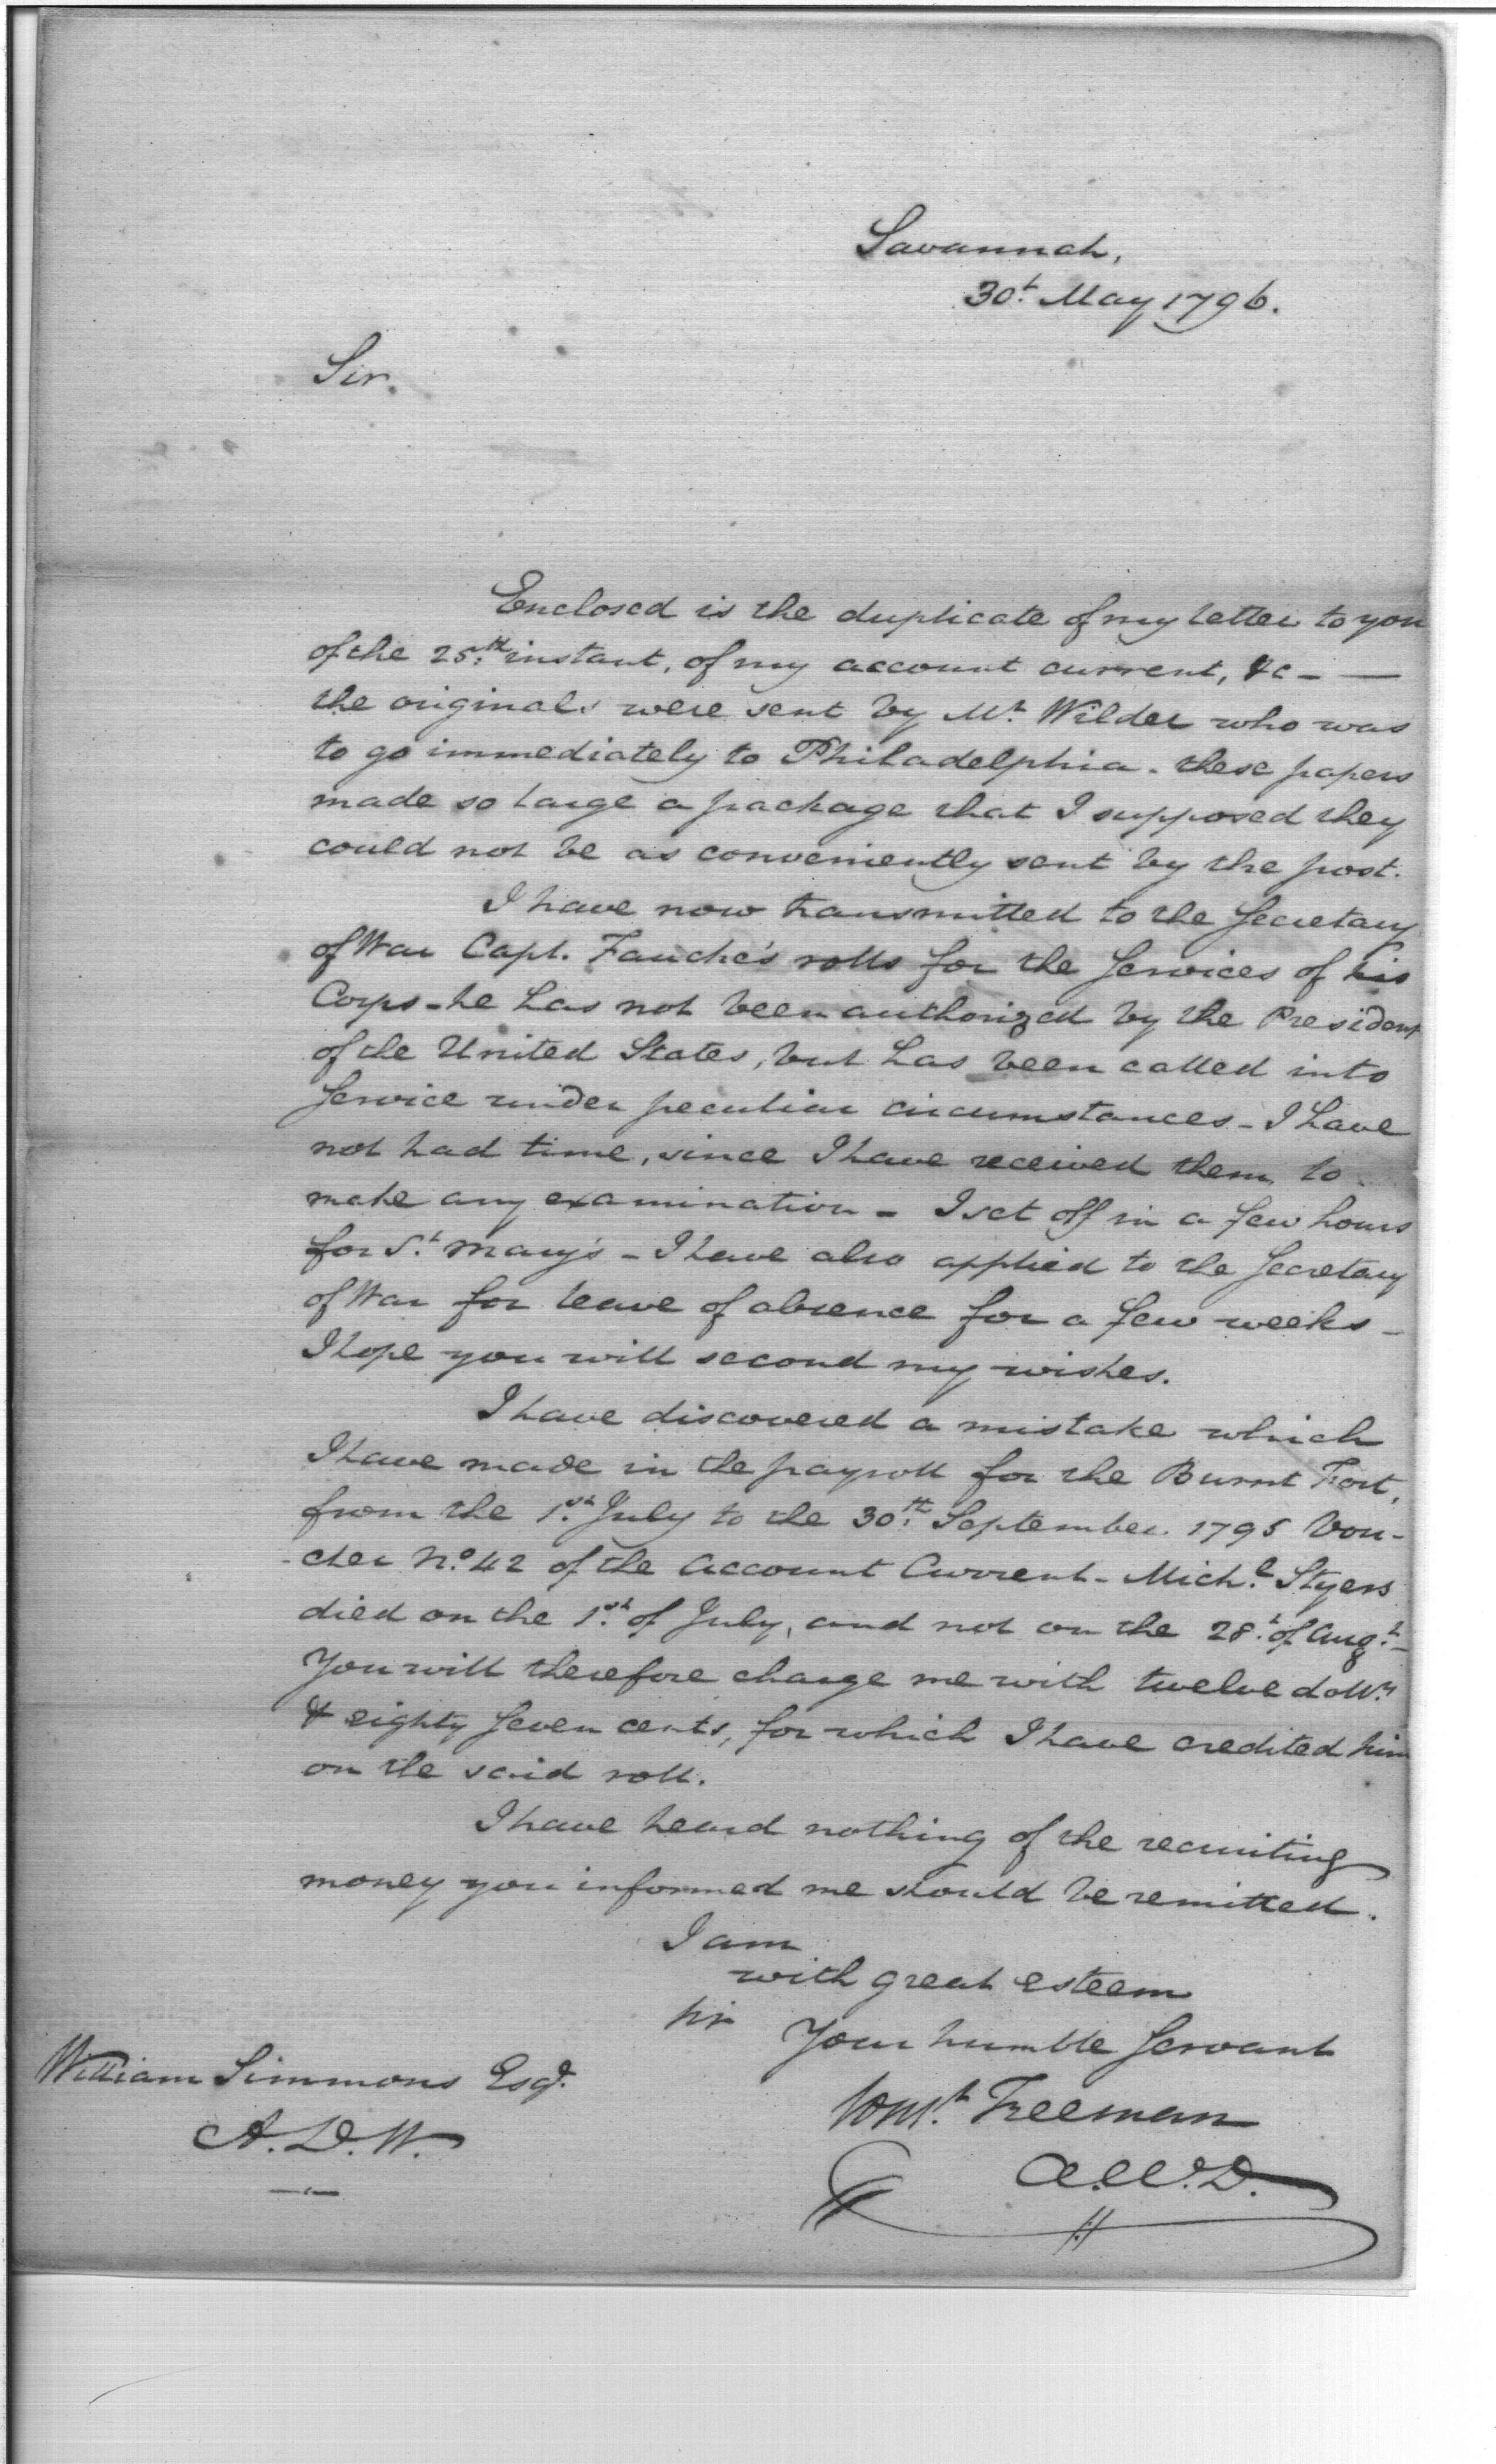 Savannah,
30t. May 1796.
Sir.
Enclosed is the duplicate of my letter to you
of the 25th. instant, of my account current, &c - —
the originals were sent by Mr. Wilder who was
to go immediately to Philadelphia - these papers
made so large a package that I supposed they
could not be as conveniently sent by the post.
I have now transmitted to the Secretary
of War Capt. Fauche's rolls for the Services of his
Corps - he has not been authorized by the President
of the United States, but has been called into
Service under peculiar circumstances - I have
not had time, since I have received them, to
make any examination - I set off in a few hours
for St. Mary's - I have also applied to the Secretary
of War for leave of absence for a few weeks -
I hope you will second my wishes.
I have discovered a mistake which
I have made in the payroll for the Burnt Fort,
from the 1st. July to the 30th. September 1795 Vou-
-cher No. 42 of the Account Current - Michl. Styers
died on the 1st. of July, and not on the 28t. of Augt. -
You will therefore charge me with twelve dollrs.
& eighty seven cents, for which I have credited him
on the said roll.
I have heard nothing of the recruiting
money you informed me should be remitted.
I am
with great esteem
Sir Your humble Servant
Const. Freeman
A.W.D.
William Simmons Esqr.
A.D.W.